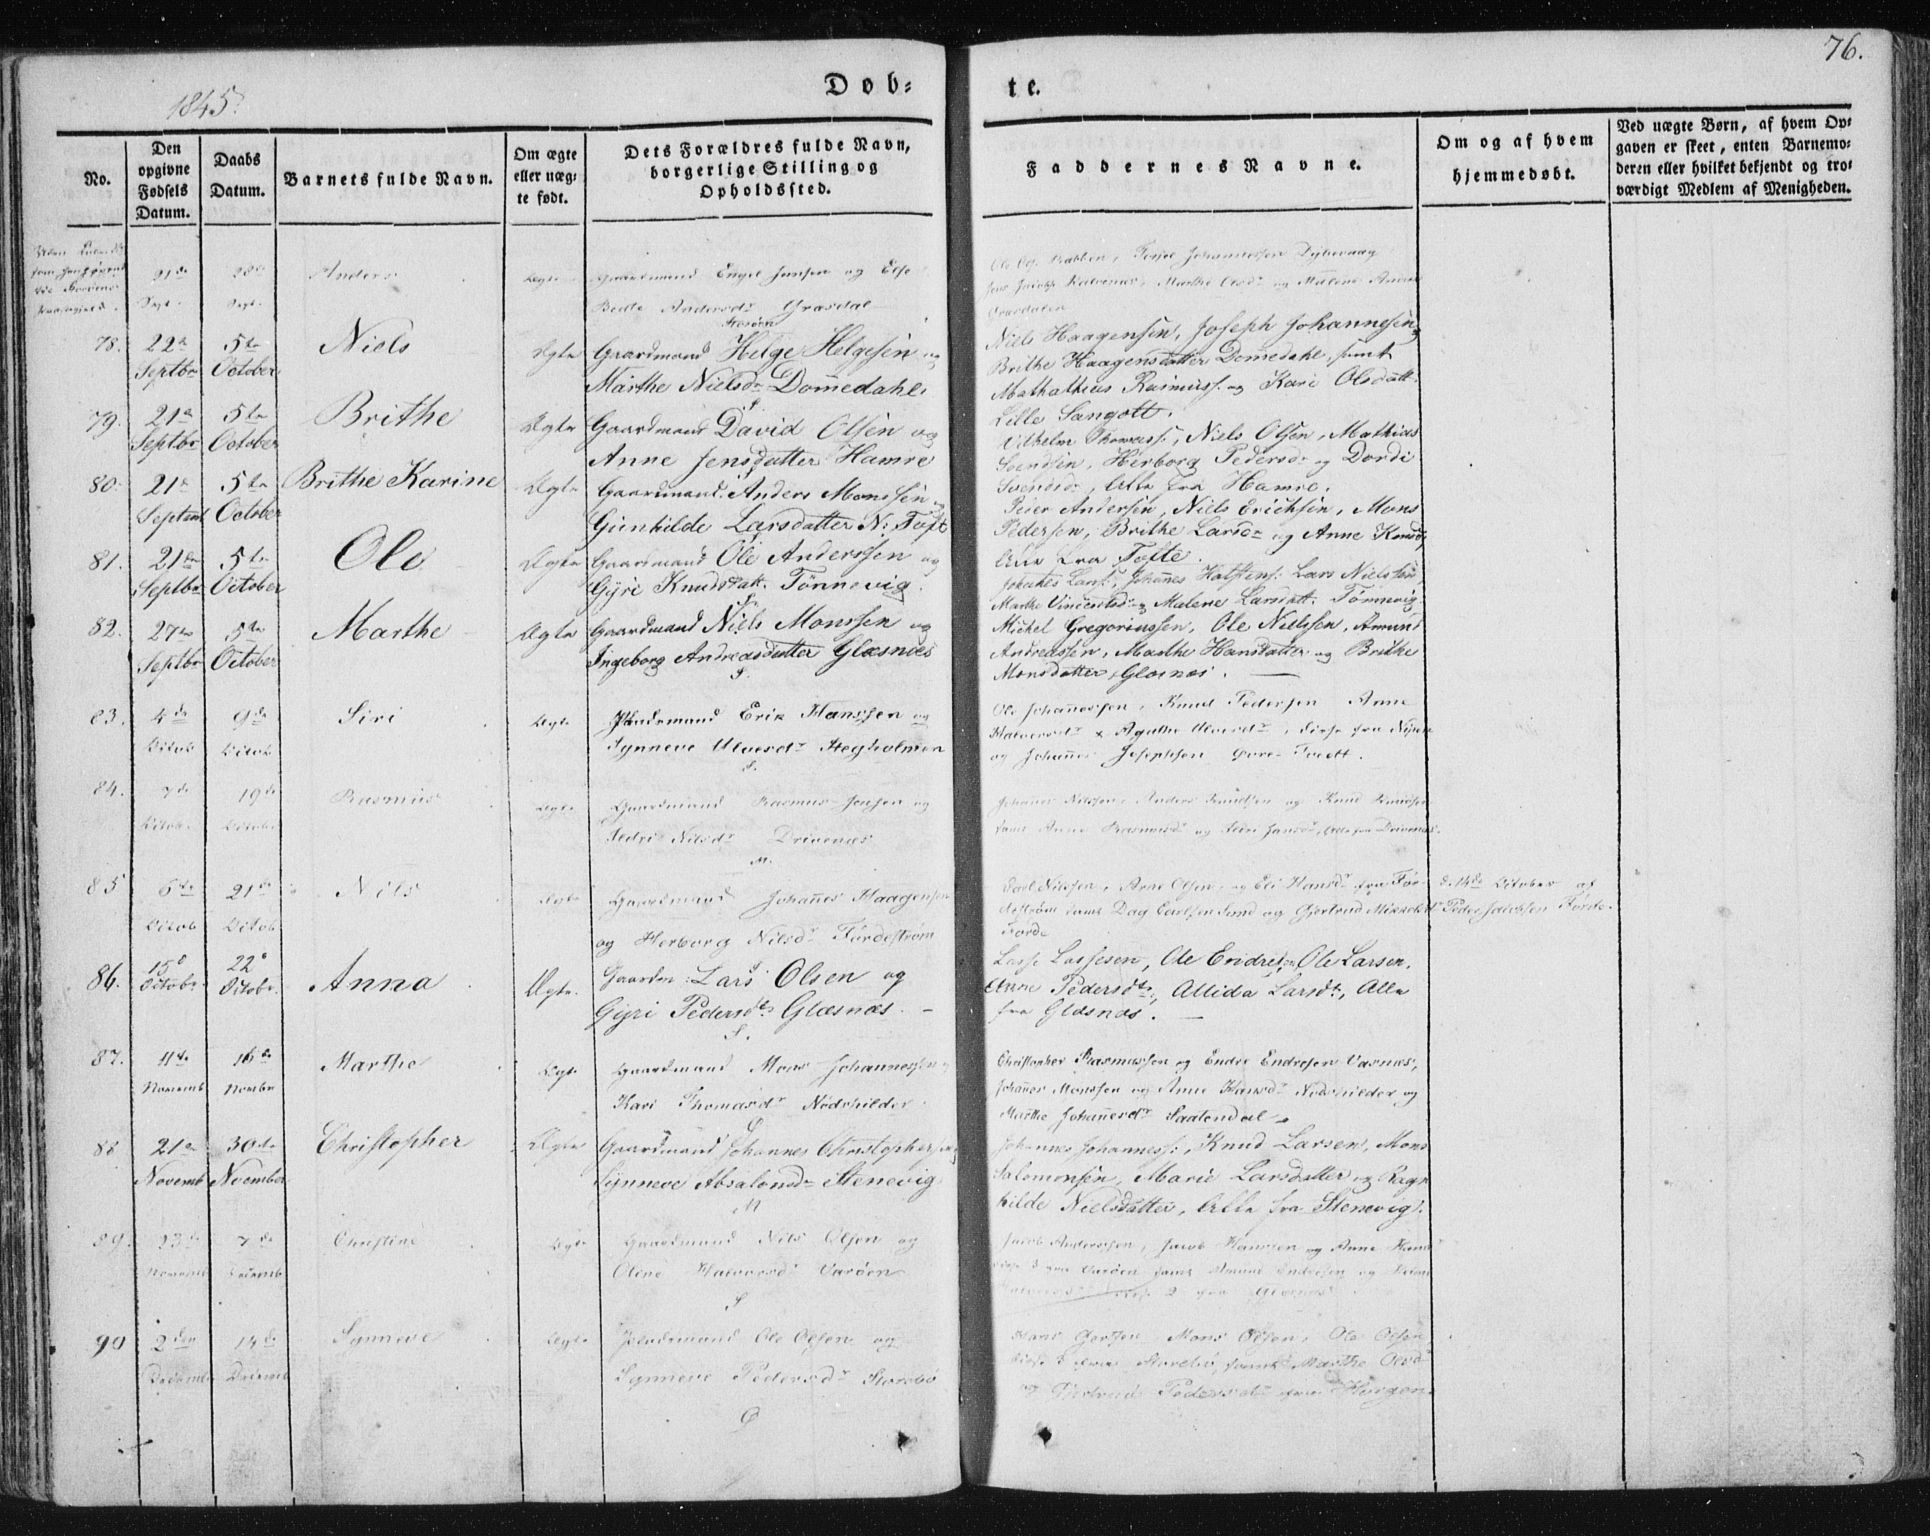 76.
1845.
Dob-
te.
No.
Den opgivne Fødsels Datum.
Daabs Datum.
Barnets fulde Navn.
Om ægte eller uægte født.
Dets Forældres fulde Navn, borgerlige Stilling og Opholdssted.
Faddernes Navne.
Om og af hvem hjemmedøbt.
Ved uægte Børn, af hvem Opgaven er skeet, enten Barnemoderen eller hvilket bekjendt og troværdigt Medlem af Menigheden.
21de
Sept.
Sept.
Anders
Ægte
Gaardmand Engel Jansen og Else
Andersdr Græsdal
Johannessen Dybevaag
Marthe Olsdr og Malene
78.
22de 5te
Septbr October
Niels
Ægte
Gaardmand Helge Helgesen og
Marthe Nielsdr Domedahl.
Niels Haagensen, Joseph Johannesen,
Brithe Haagensdatter Domedahl, samt
Rasmuss. og Kari Olsdatt.
Lille Sangolt.
79.
21de 5te
Septbr October
Brithe
Ægte
Gaardmand David Olsen og
Anne Jensdatter Hamre
Vilhelm Thomass., Niels Olsen, Mathias
Svendsen, Herborg Pedersdr og Dordi
Svendsdr, Alle fra Hamre.
80.
21de 5te
Septemb October
Brithe Karine
Ægte
Gaardmand Anders Monssen og
Gunhilde Larsdatter N: Toft
Peder Andersen, Niels Erichsen, Mons
Pedersen, Brithe Larsdr og Anne Knudsd,
Alle fra Tofte.
81.
21de 5te
Septbr October
Ole
Ægte
Gaardmand Ole Anderssen og
Gyri Knudsdatt. Tønnevig.
Johannes Lars., Johannes Lars Nielssen
Marthe og Malene Larsdatt. Tønnevig.
82.
27de 5te
Septbr October
Marthe
Ægte
Gaardmand Niels Monssen og
Ingeborg Andreasdatter Glæsnæs
Michel Gregoriussen, Ole Nielssen, Amund
Andreassen, Marthe Hansdatter og Brithe
Monsdatter, Glæsnæs.
83.
4de 9de
Octob Octob
Siri
Ægte
Pladsmand Erik Hanssen og
Synneve Hegholmen
Ole Johannessen, Knud Pedersen Anne
Halvorsdr & Agathe fra
og Johannes Josephsen
84.
7de 19de
Octob. Octobr
Rasmus
Ægte
Gaardmand Rasmus Jensen og
Nilsdr Drivenæs
M.
Johanes Nilssen, Anders Knudsen og Knud Knudsen
samt Anne Rasmusdr og Jansdr, Alle fra Drivenæs.
85
6te 21de
Octob Octob
Nils
Ægte
Gaardmand Johannes Haagensen
og Herborg Nilsdr Førdestrøm
Carl Nilssen, Arne Olsen, og Eli Hansdr fra Før-
destrøm samt Dag Carlsen Sund og Gjertrud
Førde
d. 14de October af
Peder Jacobsen Førde.
86.
15de 22de
Octobr Octobr.
Anna
Ægte.
Gaardm: Lars Olsen og
Gyri Pedersdtr Glæsnæs.
Lasse Lassesen, Ole Endresen, Ole Larsen,
Anne Pedersdtr, Allida Larsdtr, Alle
fra Glæsnæs.
87.
11te 16de
Novemb Novmbr
Marthe
Ægte
Gaardmand Mons Johannessen
Kari Thomasdr Nødshilder
Christopher Rasmussen og Endre Endresen Vasnæs,
Johanes Monssen og Anne Hansdr Nødshilder og
Marthe Johanesdr
88
21de 30te
Novemb November
Christopher
Ægte
Gaardmand Johannes Christophersen og
Synneve Absalonsdr Stenevig
Johannes Johanness:, Knud Larsen, Mons
Salomonsen, Marie Larsdatter og Ragn-
hilde Nielsdatter, Alle fra Stenevig.
89.
23de 7de
Novemb Decemb
Christine
Ægte
Gaardmand Nils Olsen og
Oline Halvorsdr Varøen
Jacob Andersen, Jacob Hanssen og Anne
fra Varøen samt Amund Endresen og
2 fra Glæsnæs
90
2den 14de
Decemb
Synneve
Ægte
Pladsmand Ole Olsen og
Synneve Pedersdr Storebø
Hans Mons Olsen, Ole Olsen
fra Storebø, samt Marthe Olsd
og Gjertrud Pedersdr fra